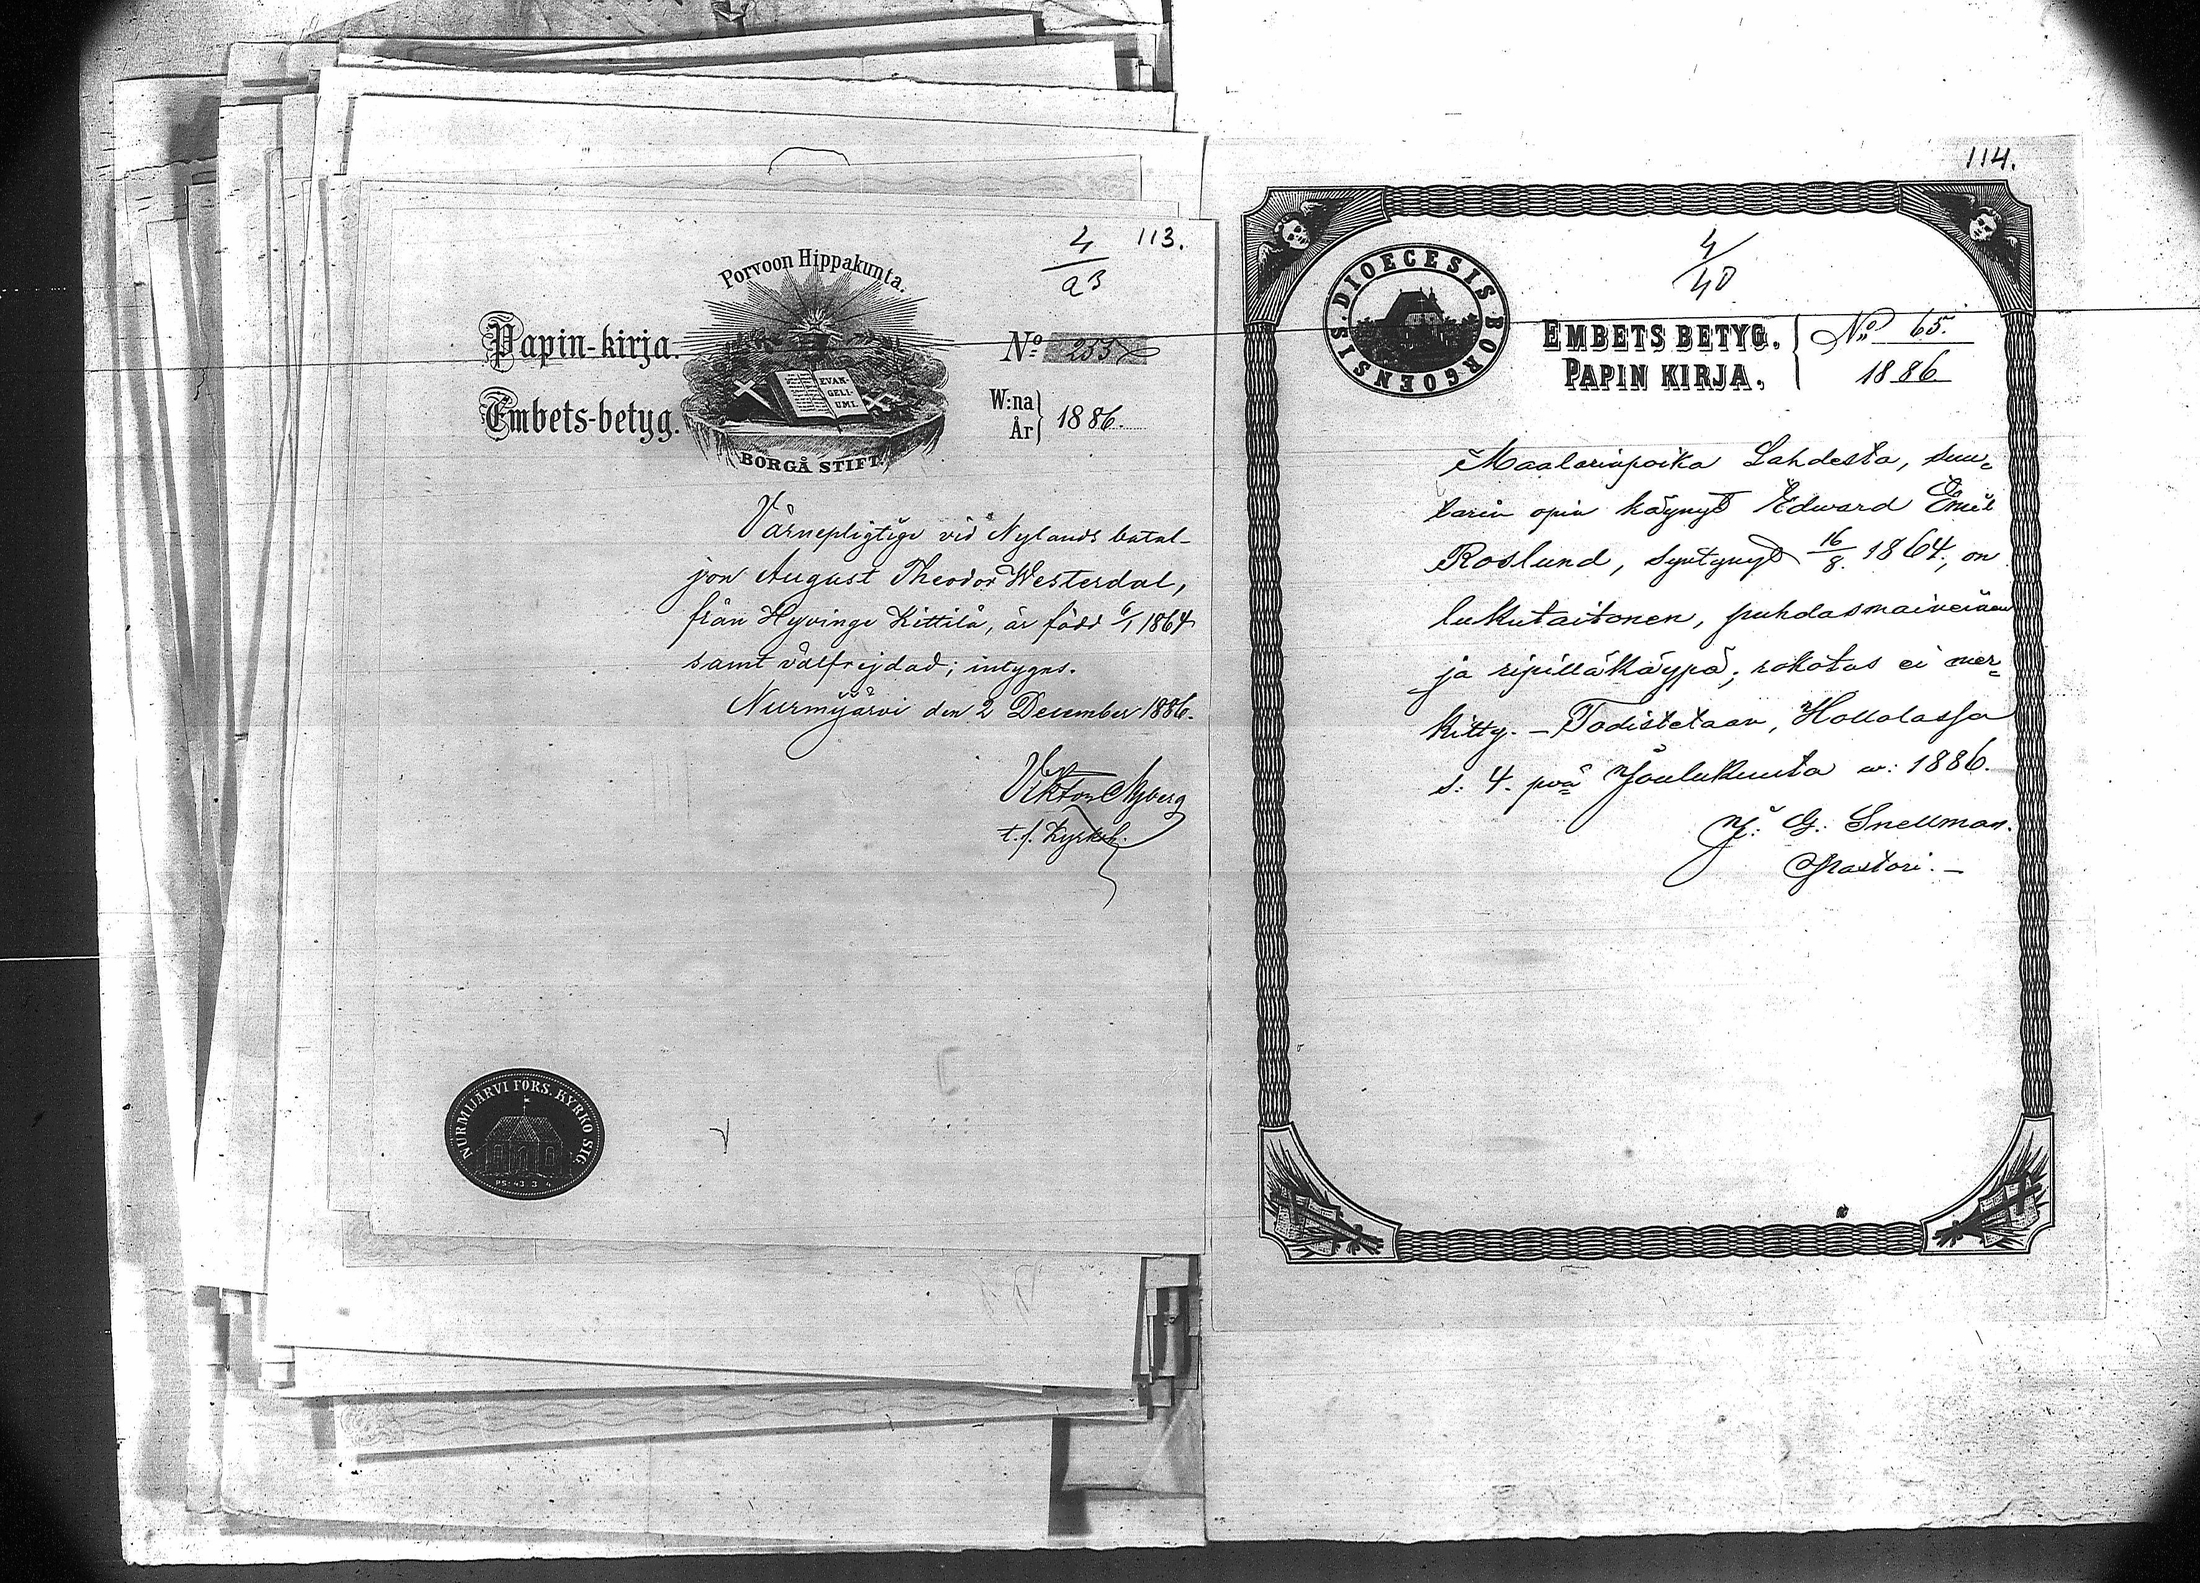 113.
4
a3
Porvoon Hippakunta.
Papin-kirja.
Embets-betyg.
EVAN-
GELI-
UMI.
BORGÅ STIFT.
No 255
W:na
År
1886.
Värnepligtige vid Nylands batal-
jon August Theodor Westerdal,
från Hyvinge Kittilä, är född 6/1 1864
samt välfrejdad; intygas.
Nurmijärvi den 2 December 1886.
Viktor Nyberg
t. f. Kyrkoh.
NURMIJÄRVI FÖRS. KYRKO SIG.
PS: 43. 3. 4.
114.
4
40
DIOECESIS BORGOENSIS.
EMBETS BETYG.
PAPIN KIRJA.
No 65.
1886
Maalarinpoika Lahdesta, suu-
tarin opin käynyt Edward Emil
Roslund, syntynyt 16/8 1864, on
lukutaitonen, puhdasmaineinen
ja ripilläkäypä; rokotus ei mer-
kitty. - Todistetaan, Hollolassa
s: 4. pvä Joulukuuta w: 1886.
G. Snellman.
Pastori. -